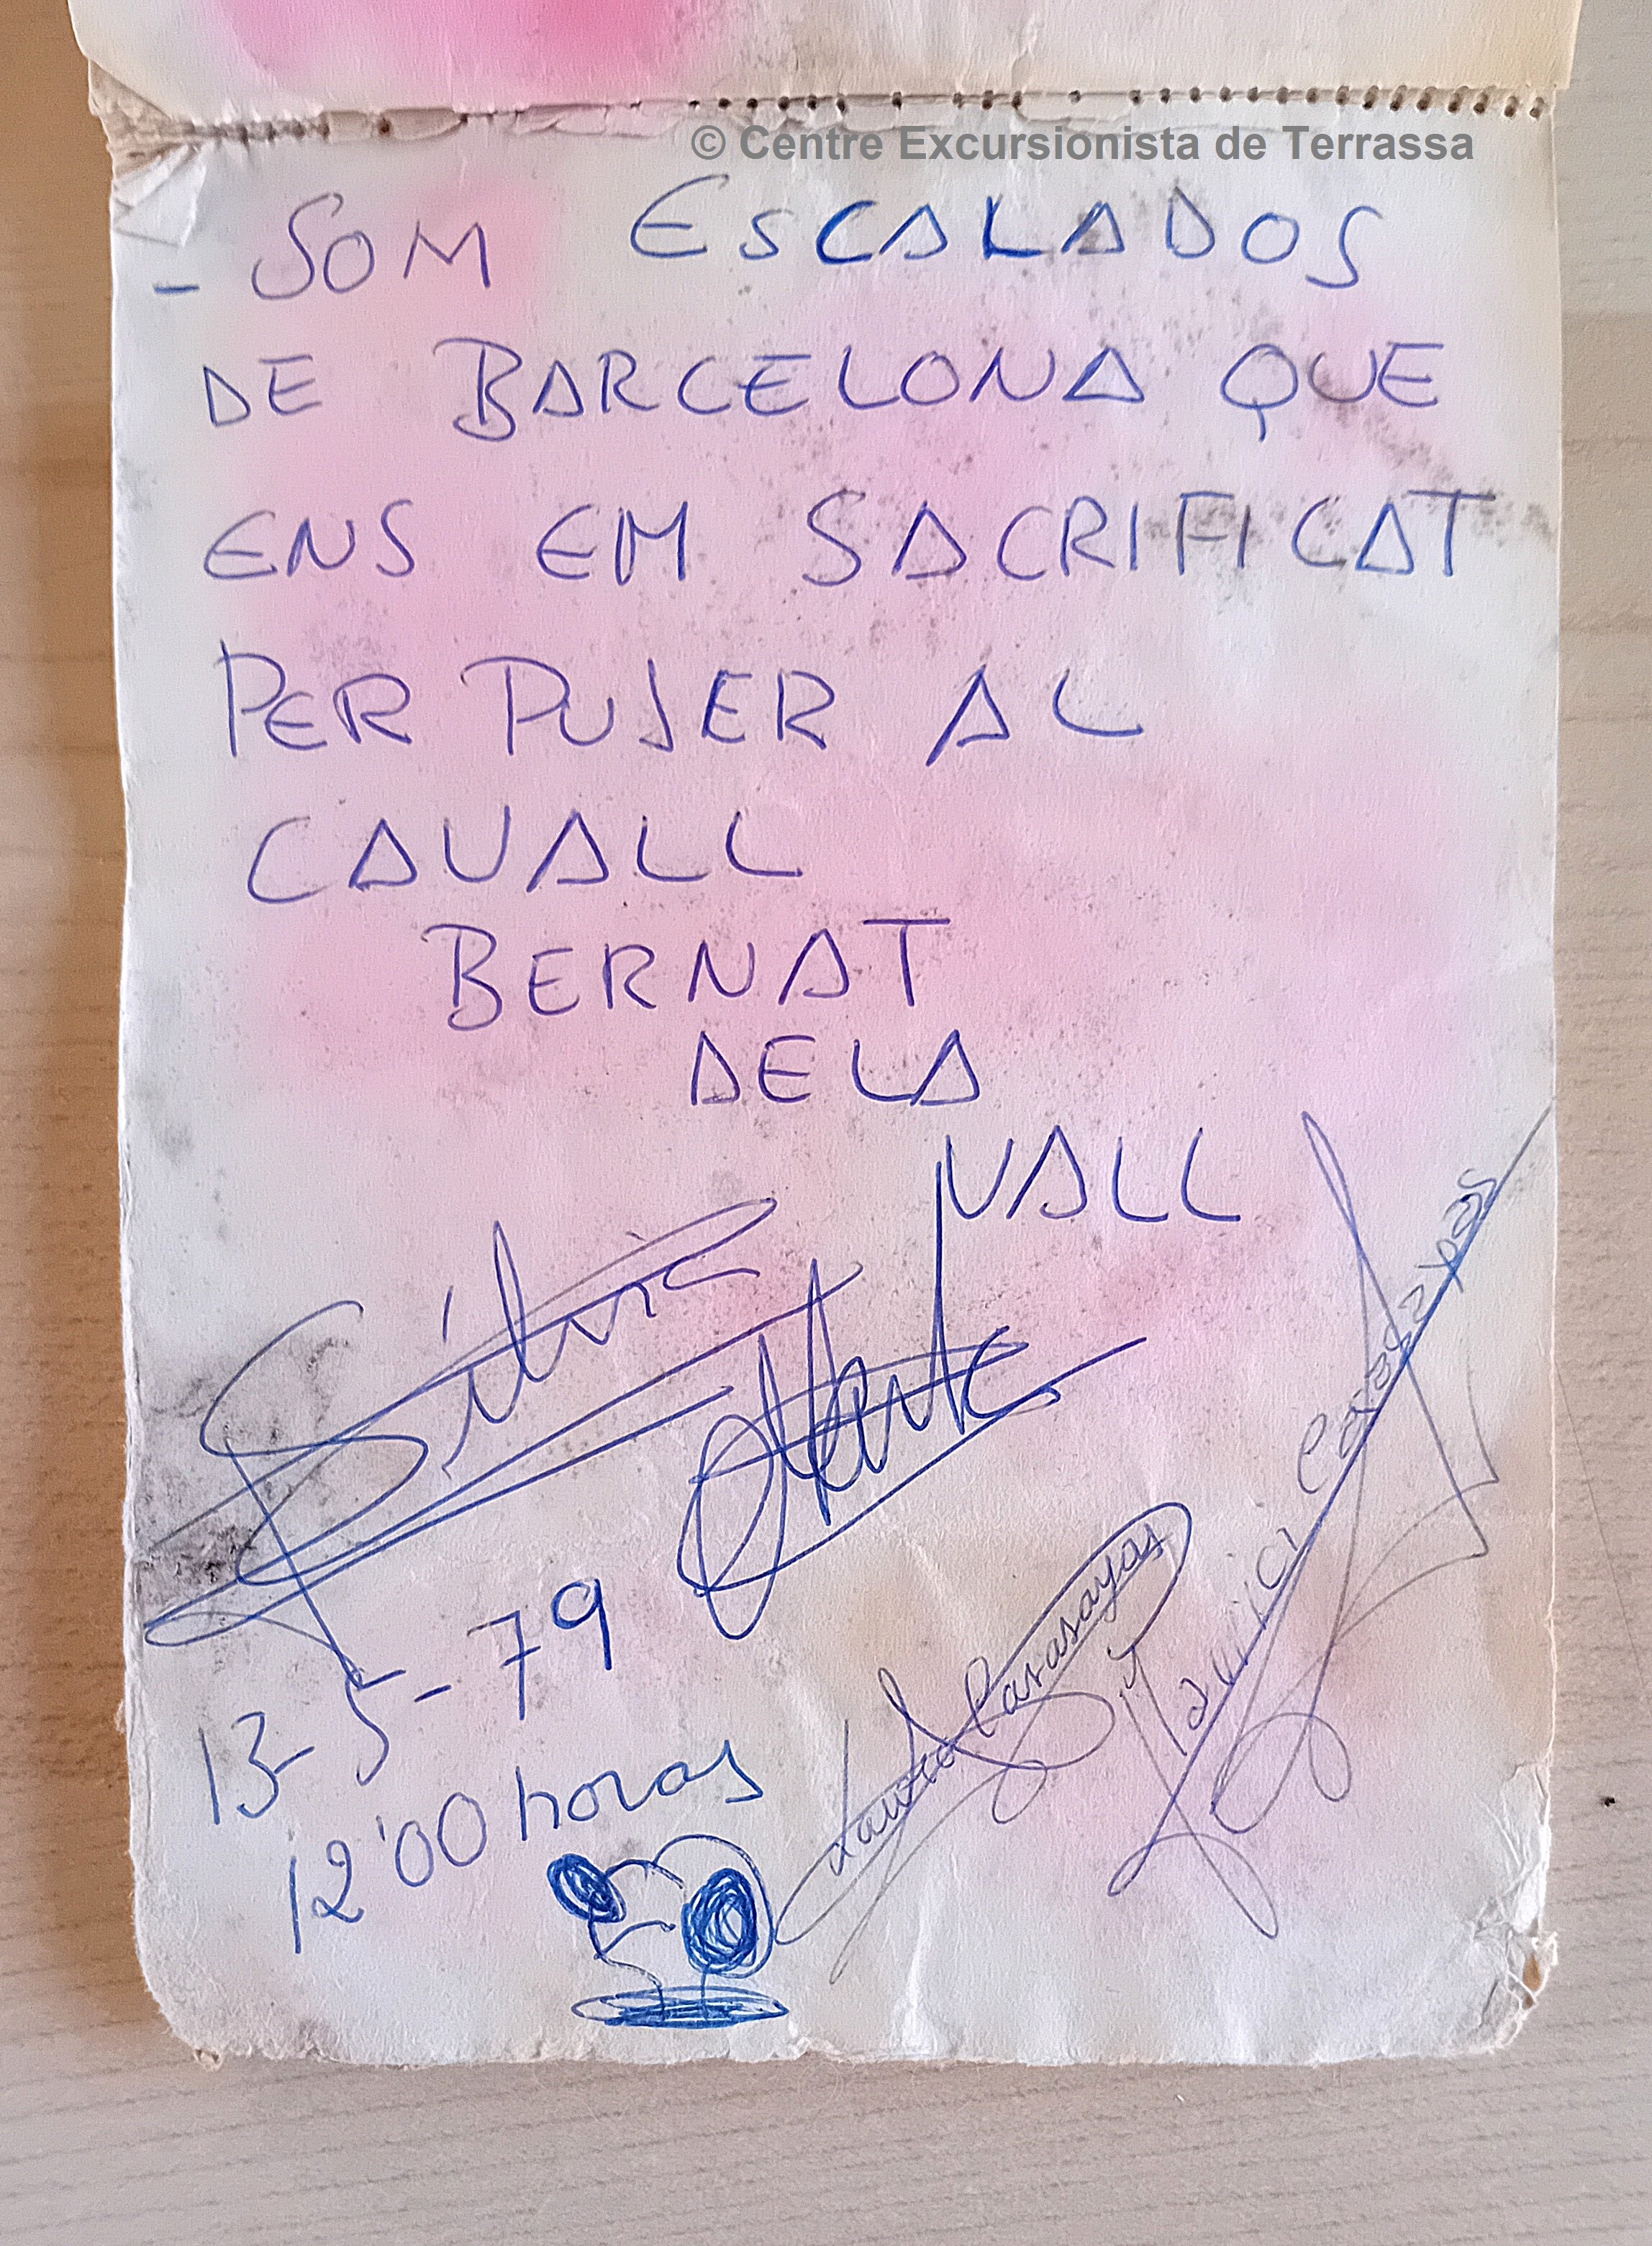 © Centre Excursionista de Terrassa
- SOM ESCALADOS
DE BARCELONA QUE
ENS EM SACRIFICAT
PER PUJER AL
CAVALL
BERNAT
DE LA
VALL
Silvia
Marta
Laura Casasayas
Maurici Casasayas
13-5-79
12'00 horas